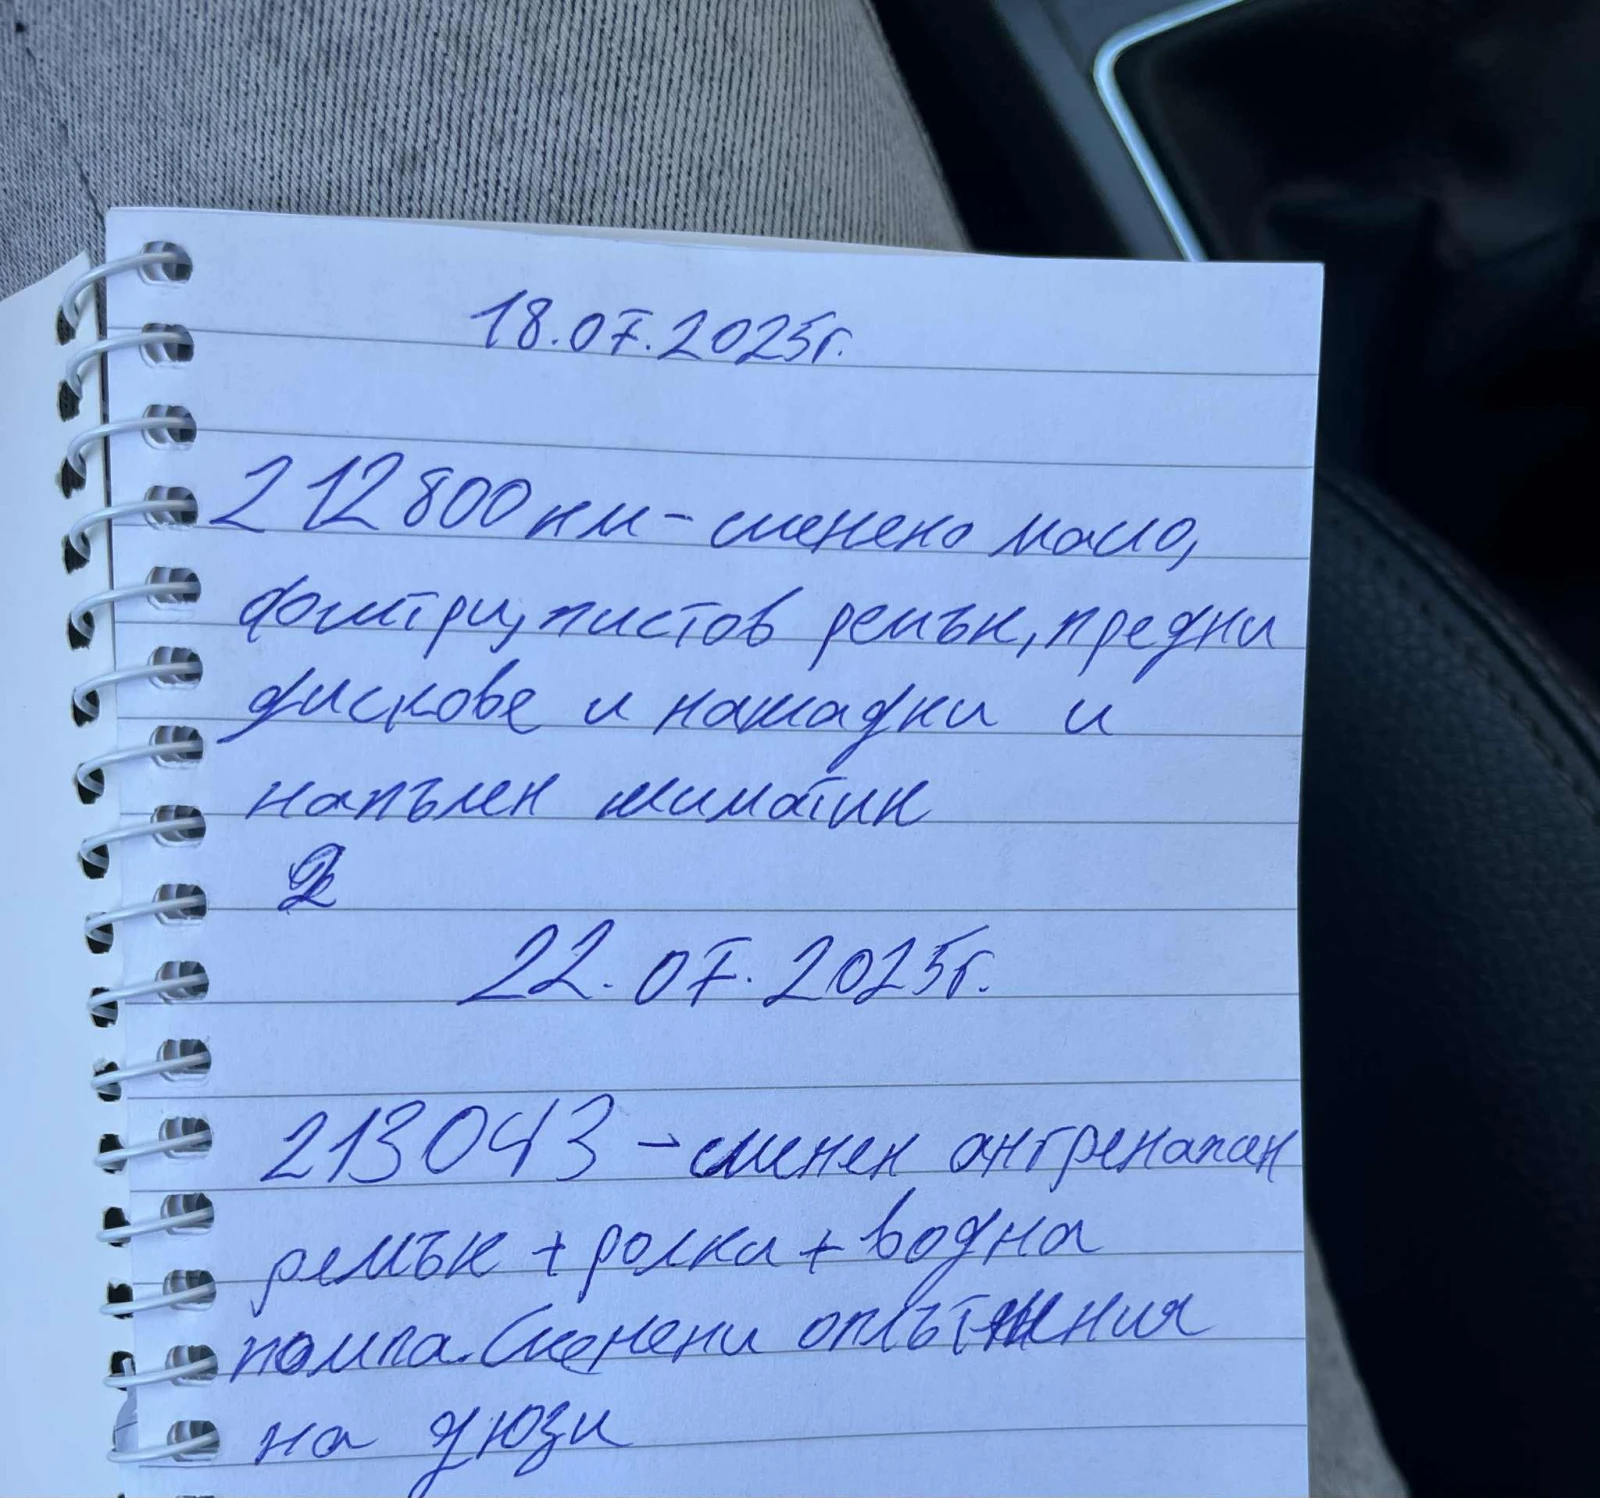 18.07.2025г.
212800 км - сменено масло,
филтри, пистов ремък, предни
дискове и накладки и
напълен климатик
2
22.07.2025г.
213043 - сменен ангренажен
ремък + ролка + водна
помпа. Сменени оплътнения
на дюзи